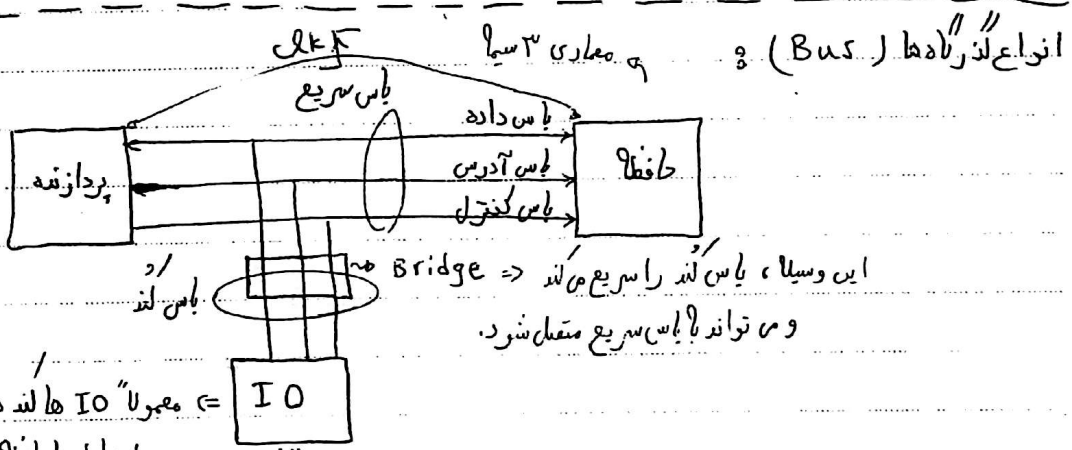 انواع گذرگاه‌ها (Bus) :
معماری ۳ سیمه
clk
باس سریع
باس داده
باس آدرس
باس کنترل
پردازنده
حافظه
Bridge => این وسیله، باس کُند را سریع می‌کند
و می تواند با باس سریع متصل شود.
باس کُند
IO => معمولاً IO ها کُند